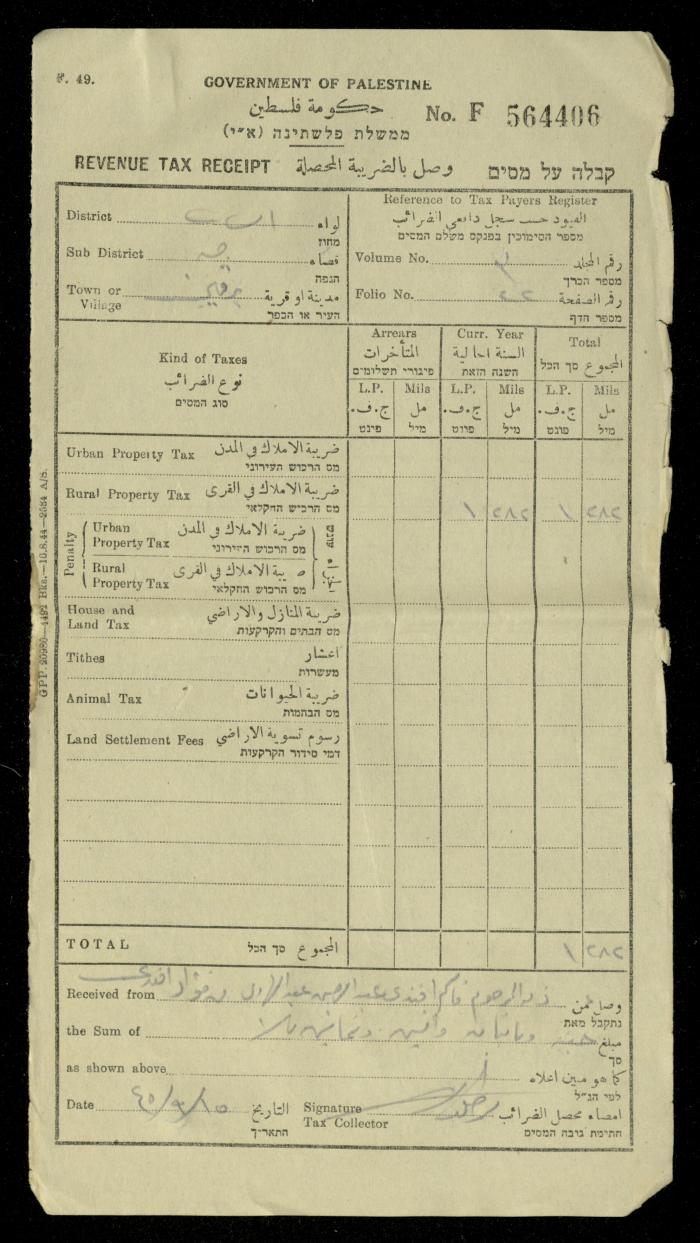 F. 49.
GOVERNMENT OF PALESTINE
حكومة فلسطين
No. F 564406
ממשלת פלשתינה (א״י)
REVENUE TAX RECEIPT وصل بالضريبة المحصلة קבלה על מסים
District لواء
מחוז
Sub District جنين قضاء
הנפה
Town or Village برقين مدينة او قرية
העיר או הכפר
Reference to Tax Payers Register
القيود حسب سجل دافعي الضرائب
מספר הסימוכין בפנקס משלם המסים
Volume No. رقم المجلد
מספר הכרך
Folio No. ٤٤ رقم الصفحة
מספר הדף
Kind of Taxes
نوع الضرائب
סוג המסים
Arrears
المتأخرات
פיגורי תשלומים
Curr. Year
السنة الحالية
השנה הזאת
Total
المجموع סך הכל
L.P. Mils L.P. Mils L.P. Mils
ج.ف. مل ج.ف. مل ج.ف. مل
פינט מיל פונט מיל פונט מיל
Urban Property Tax ضريبة الاملاك في المدن
מס הרכוש העירוני
Rural Property Tax ضريبة الاملاك في القرى
מס הרכיש החקלאי
١ ٢٨٢ ١ ٢٨٢
Penalty
Urban Property Tax ضريبة الاملاك في المدن
מס הרכוש העירוני
Rural Property Tax ضريبة الاملاك في القرى
מס הרכוש החקלאי
עונש
House and Land Tax ضريبة المنازل والاراضي
מס הבתים והקרקעות
Tithes اعشار
מעשרות
Animal Tax ضريبة الحيوانات
מס הבהמות
Land Settlement Fees رسوم تسوية الاراضي
דמי סידור הקרקעות
TOTAL סך הכל المجموع ١ ٢٨٢
Received from عبد الهادي وصل من
נתקבל מאת
the Sum of مبلغ
סך
as shown above كما هو مبين اعلاه
לפי הנ״ל
Date التاريخ
התאריך
Signature Tax Collector امضاء محصل الضرائب
חתימת גובה המסים
GPP. 20980—4492 Bks.—10.8.44—2534 A/S.